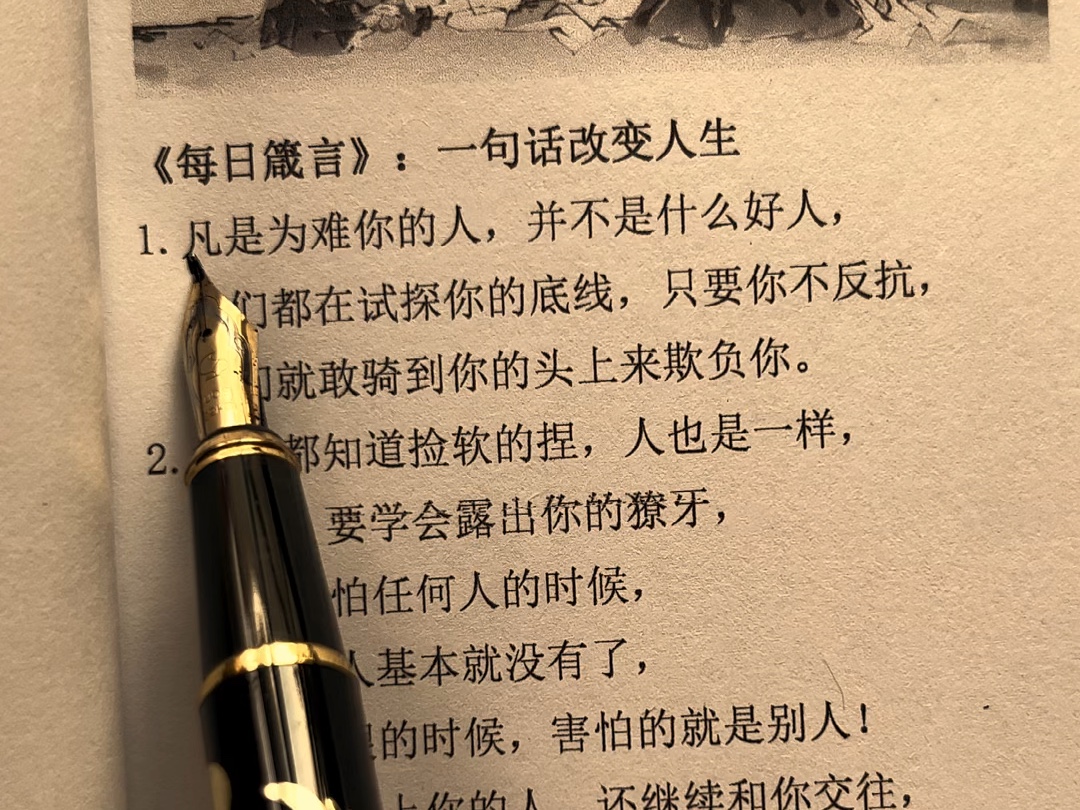 《每日箴言》：一句话改变人生
1. 凡是为难你的人，并不是什么好人，
们都在试探你的底线，只要你不反抗，
就敢骑到你的头上来欺负你。
2. 都知道捡软的捏，人也是一样，
要学会露出你的獠牙，
怕任何人的时候，
人基本就没有了，
的时候，害怕的就是别人！
上你的人，还继续和你交往，